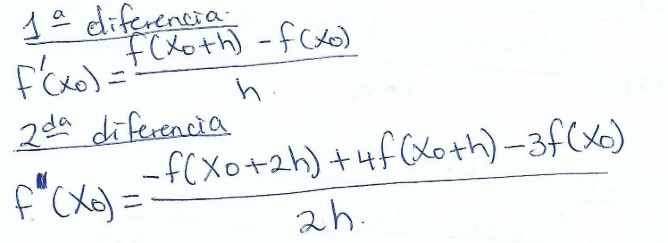 1ª diferencia.
f'(x₀) = f(x₀+h) - f(x₀) / h.
2da diferencia
f"(x₀) = -f(x₀+2h) + 4f(x₀+h) - 3f(x₀) / 2h.